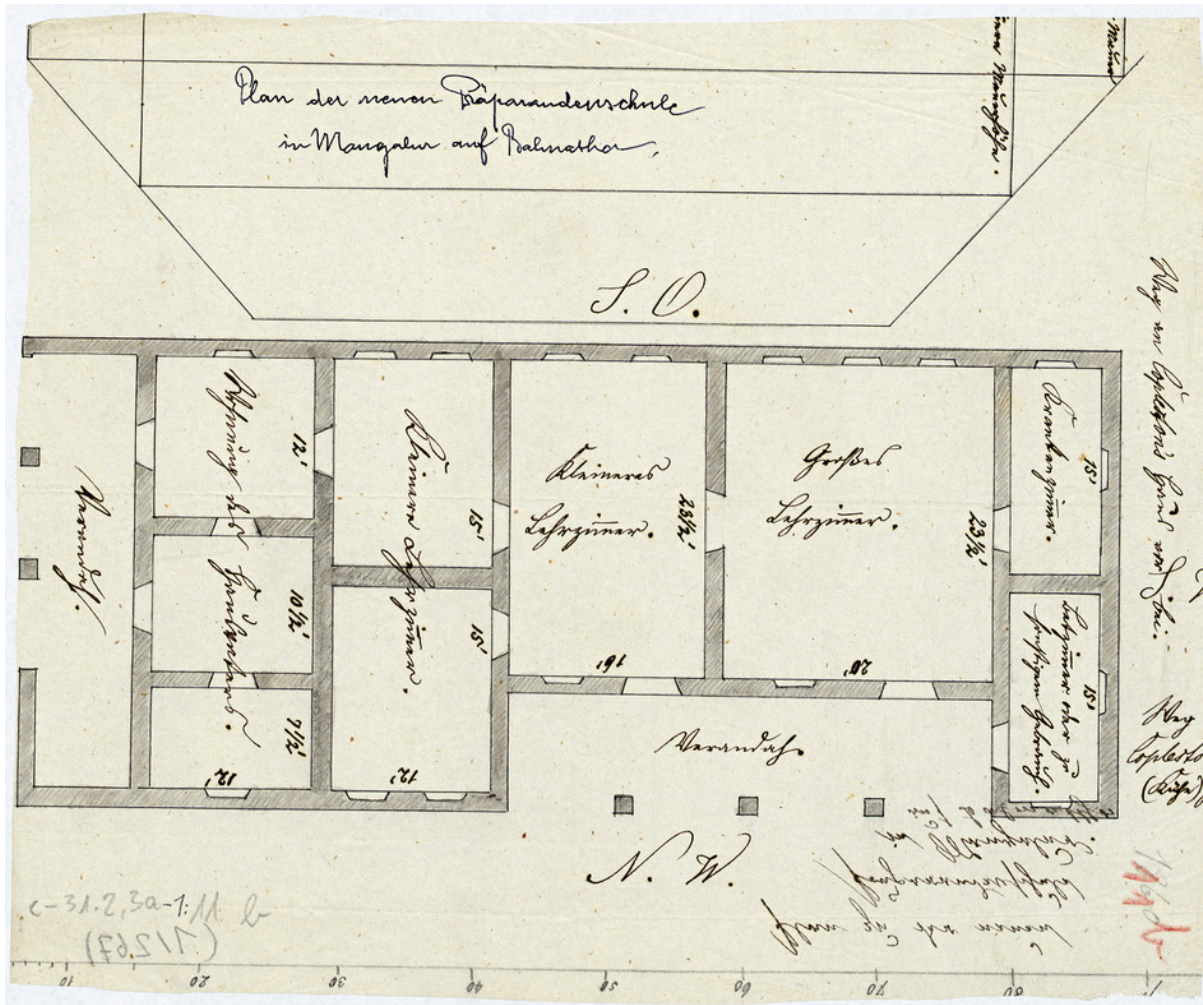 Plan der neuen Präparandenschule
in Mangalur auf Balmatha.
S. O.
Verandah.
Wohnung des Hausvaters.
12'
10½'
7½'
12'
Kleinere Lehrzimer.
15'
15'
12'
Kleineres
Lehrzimer.
23½'
16'
Großes
Lehrzimer.
23½'
20'
Krankenzimer.
15'
Betzimer oder zu
sonstigem Gebrauch.
15'
Verandah.
N. W.
Weg an Coplestons Haus vorbei.
Weg
Coplesto
(Kühe)
c-31.2,3a-1: 11 b
(1/267)
11b
10 20 30 40 50 60 70 80